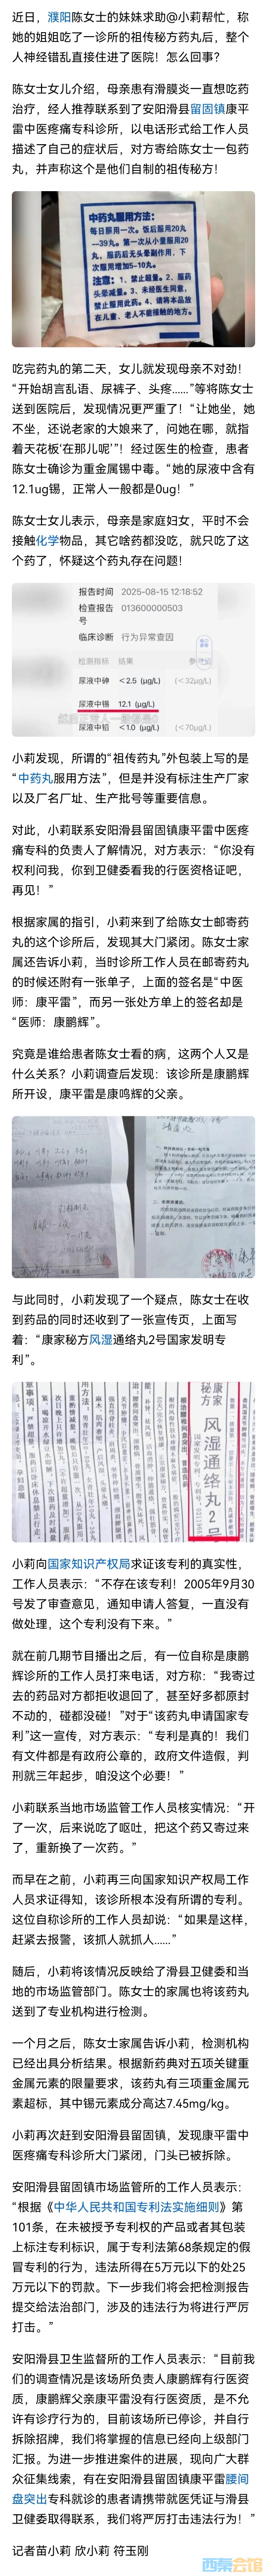 近日，濮阳陈女士的妹妹求助@小莉帮忙，称
她的姐姐吃了一诊所的祖传秘方药丸后，整个
人神经错乱直接住进了医院！怎么回事？
陈女士女儿介绍，母亲患有滑膜炎一直想吃药
治疗，经人推荐联系到了安阳滑县留固镇康平
雷中医疼痛专科诊所，以电话形式给工作人员
描述了自己的症状后，对方寄给陈女士一包药
丸，并声称这个是他们自制的祖传秘方！
中药丸服用方法：
每日服用一次。饭后服用20丸
—39丸。第一次从小量服用20
丸，服药后无头晕副作用，下
次服用增加5—10丸。
注意：1、禁超量。2、服药
头晕减量。3、未经医生同意，
禁止服用此药。4、请将本品放
在儿童、老人不能接触的地方。
吃完药丸的第二天，女儿就发现母亲不对劲！
“开始胡言乱语、尿裤子、头疼……”等将陈女士
送到医院后，发现情况更严重了！“让她坐，她
不坐，还说老家的大娘来了，问她在哪，就指
着天花板‘在那儿呢’”！经过医生的检查，患者
陈女士确诊为重金属锡中毒。“她的尿液中含有
12.1ug锡，正常人一般都是0ug！”
陈女士女儿表示，母亲是家庭妇女，平时不会
接触化学物品，其它啥药都没吃，就只吃了这
个药了，怀疑这个药丸存在问题！
报告时间 2025-08-15 12:18:52
检查报告 013600000503
号
临床诊断 行为异常查因
检测指标 结果 参考值
尿液中砷 ＜2.5 (μg/L) (＜32μg/L)
尿液中锡 12.1 (μg/L)
尿液中铅 ＜1.0 (μg/L) (＜70μg/L)
小莉发现，所谓的“祖传药丸”外包装上写的是
“中药丸服用方法”，但是并没有标注生产厂家
以及厂名厂址、生产批号等重要信息。
对此，小莉联系安阳滑县留固镇康平雷中医疼
痛专科的负责人了解情况，对方表示：“你没有
权利问我，你到卫健委看我的行医资格证吧，
再见！”
根据家属的指引，小莉来到了给陈女士邮寄药
丸的这个诊所后，发现其大门紧闭。陈女士家
属还告诉小莉，当时诊所工作人员在邮寄药丸
的时候还附有一张单子，上面的签名是“中医
师：康平雷”，而另一张处方单上的签名却是
“医师：康鹏辉”。
究竟是谁给患者陈女士看的病，这两个人又是
什么关系？小莉调查后发现：该诊所是康鹏辉
所开设，康平雷是康鸣辉的父亲。
与此同时，小莉发现了一个疑点，陈女士在收
到药品的同时还收到了一张宣传页，上面写
着：“康家秘方风湿通络丸2号国家发明专
利”。
康家
秘方
风湿通络丸2号
小莉向国家知识产权局求证该专利的真实性，
工作人员表示：“不存在该专利！2005年9月30
号发了审查意见，通知申请人答复，一直没有
做处理，这个专利没有下来。”
就在前几期节目播出之后，有一位自称是康鹏
辉诊所的工作人员打来电话，对方称：“我寄过
去的药品对方都拒收退回了，甚至好多都原封
不动的，碰都没碰！”对于“该药丸申请国家专
利”这一宣传，对方表示：“专利是真的！我们
有文件都是有政府公章的，政府文件造假，判
刑就三年起步，咱没这个必要！”
小莉联系当地市场监管工作人员核实情况：“开
了一次，后来说吃了呕吐，把这个药又寄过来
了，重新换了一次药。”
而早在之前，小莉再三向国家知识产权局工作
人员求证得知，该诊所根本没有所谓的专利。
这位自称诊所的工作人员却说：“如果是这样，
赶紧去报警，该抓人就抓人……”
随后，小莉将该情况反映给了滑县卫健委和当
地的市场监管部门。陈女士的家属也将该药丸
送到了专业机构进行检测。
一个月之后，陈女士家属告诉小莉，检测机构
已经出具分析结果。根据新药典对五项关键重
金属元素的限量要求，该药丸有三项重金属元
素超标，其中锡元素成分高达7.45mg/kg。
小莉再次赶到安阳滑县留固镇，发现康平雷中
医疼痛专科诊所大门紧闭，门头已被拆除。
安阳滑县留固镇市场监管所的工作人员表示：
“根据《中华人民共和国专利法实施细则》第
101条，在未被授予专利权的产品或者其包装
上标注专利标识，属于专利法第68条规定的假
冒专利的行为，违法所得在5万元以下的处25
万元以下的罚款。下一步我们将会把检测报告
提交给法治部门，涉及的违法行为将进行严厉
打击。”
安阳滑县卫生监督所的工作人员表示：“目前我
们的调查情况是该场所负责人康鹏辉有行医资
质，康鹏辉父亲康平雷没有行医资质，是不允
许有诊疗行为的，目前该场所已停诊，并自行
拆除招牌，我们将掌握的信息已经向上级部门
汇报。为进一步推进案件的进展，现向广大群
众征集线索，有在安阳滑县留固镇康平雷腰间
盘突出专科就诊的患者请携带就医凭证与滑县
卫健委取得联系，我们将严厉打击违法行为！”
记者苗小莉 欣小莉 符玉刚